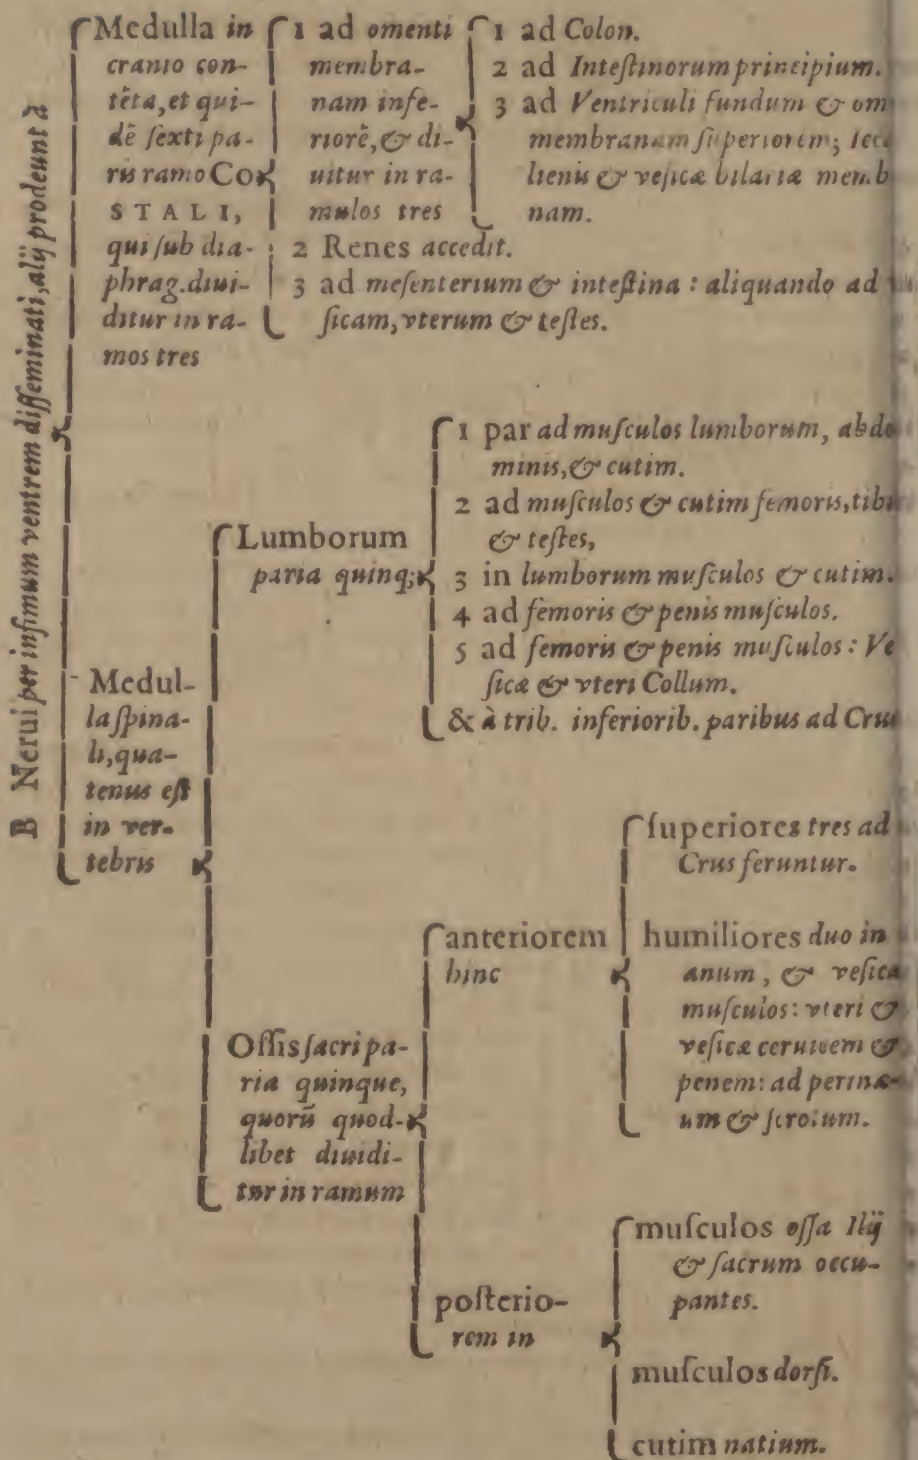 B Nerui per infimum ventrem disseminati, alij prodeunt à
Medulla in
cranio con-
tēta, et qui-
dē sexti pa-
ris ramo CO-
STALI,
qui sub dia-
phrag. diui-
ditur in ra-
mos tres
1 ad omenti
membra-
nam infe-
riorē, & di-
uitur in ra-
mulos tres
1 ad Colon.
2 ad Intestinorum principium.
3 ad Ventriculi fundum & om
membranam superiorem;
lienis & vesicæ bilariæ memb
nam.
2 Renes accedit.
3 ad mesenterium & intestina: aliquando ad
sicam, vterum & testes.
Medul-
la spina-
li, qua-
tenus est
in ver-
tebris
Lumborum
paria quinq;
1 par ad musculos lumborum, abdo
minis, & cutim.
2 ad musculos & cutim femoris, tibi
& testes,
3 in lumborum musculos & cutim.
4 ad femoris & penis musculos.
5 ad femoris & penis musculos: Ve
sicæ & vteri Collum.
& à trib. inferiorib. paribus ad Cru
Ossis sacri pa-
ria quinque,
quorū quod-
libet diuidi-
tur in ramum
anteriorem
hinc
superiores tres ad
Crus feruntur.
humiliores duo in
anum, & vesicæ
musculos: vteri &
vesicæ ceruicem &
penem: ad perinæ-
um & scrotum.
posterio-
rem in
musculos ossa Ilij
& sacrum occu-
pantes.
musculos dorsi.
cutim natium.